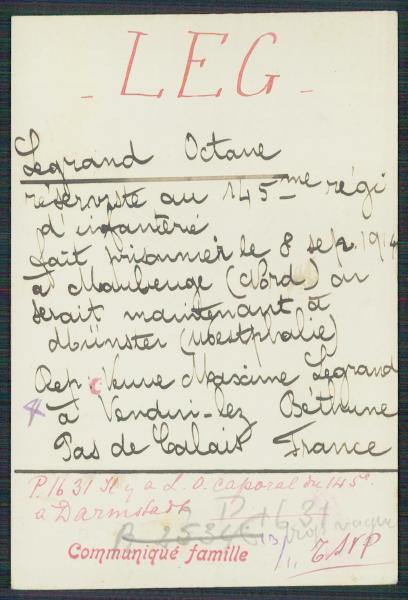 - LEG -
Legrand Octave
réserviste au 145-me régi
d'infanterié
fait prisonnier le 8 sep. 1914
à Maubeuge (Nord) on
serait maintenant à
Münster (Westphalie)
Rep. Veuve Maxime Legrand
à Vendin-lez Béthune
Pas de Calais France
P. 1631 Il y a L. O. caporal du 145e.
a Darmstadt
P 1631
R 25346 trop vague
Communiqué famille
TSVP